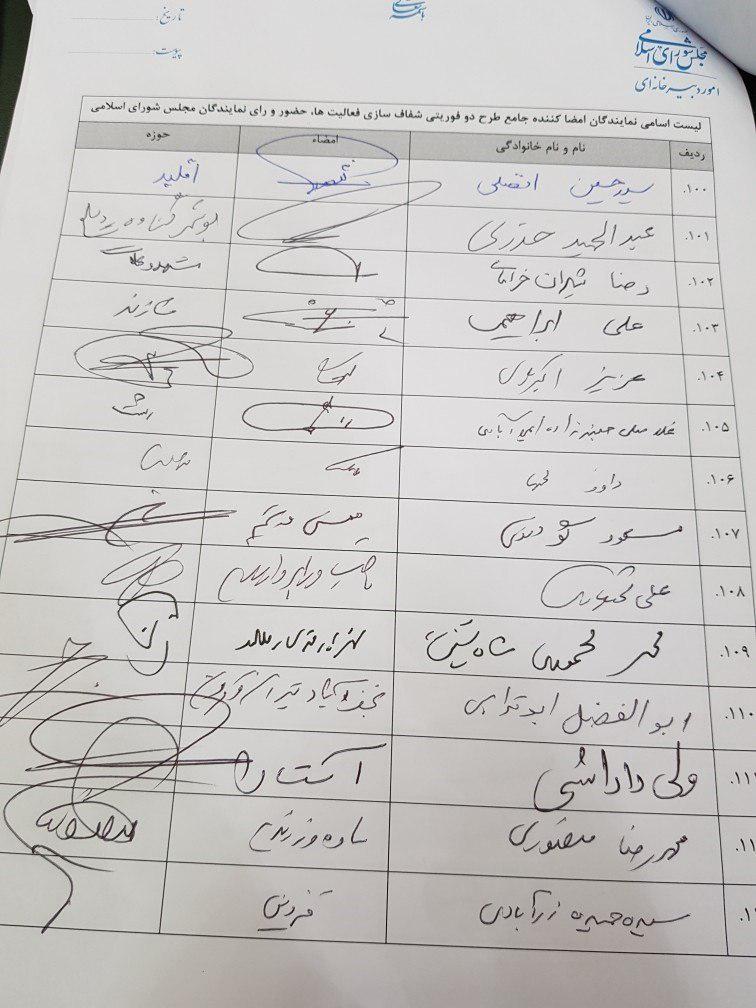 باسمه تعالی
مجلس شورای اسلامی
امور دبیرخانه‌ای
تاریخ:
پیوست:
لیست اسامی نمایندگان امضا کننده جامع طرح دو فوریتی شفاف سازی فعالیت ها، حضور و رای نمایندگان مجلس شورای اسلامی
ردیف نام و نام خانوادگی امضاء حوزه
۱۰۰. سید حسین افضلی اقلید
۱۰۱. عبدالحمید خدری بوشهر گناوه دیلم
۱۰۲. رضا شیران خراسانی مشهد و کلات
۱۰۳. علی ابراهیمی شازند
۱۰۴. عزیز اکبریان
۱۰۵. غلامعلی جعفرزاده ایمن آبادی رشت
۱۰۶. داود
۱۰۷. مسعود گودرزی
۱۰۸. علی بختیار
۱۰۹. محمد محمودی شاه نشین
۱۱۰. ابوالفضل ابوترابی نجف آباد تیران و کرون
ولی داداشی آستارا
محمدرضا منصوری ساوه و زرندیه
سیده حمیده زرآبادی قزوین